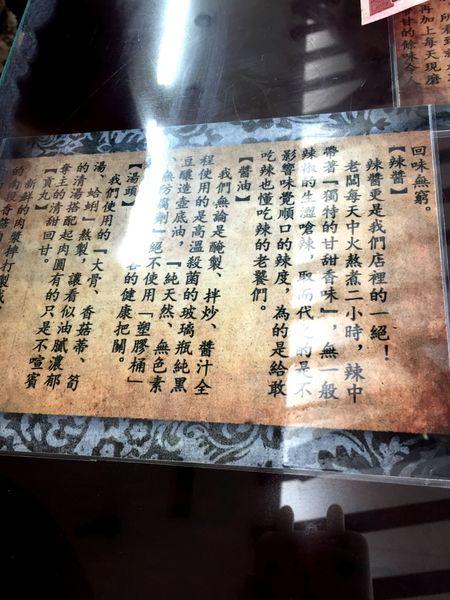 所有
再加上每天現磨
甘的餘味令人
回味無窮。
【辣醬】
辣醬更是我們店裡的一絕！
老闆每天中火熬煮二小時，辣中
帶著『獨特的甘甜香味』，無一般
辣椒的生澀嗆辣，取而代之的是不
影響味覺順口的辣度，為的是給敢
吃辣也懂吃辣的老饕們。
【醬油】
我們無論是醃製、拌炒、醬汁全
程使用的是高溫殺菌的玻璃瓶純黑
豆釀造壺底油，『純天然、無色素
、無防腐劑』絕不使用「塑膠桶」
客的健康把關。
【湯頭】
我們使用的『大骨、香菇蒂、筍
湯、蛤蜊』熬製，讓看似油膩濃郁
的清湯搭配起肉圓有的只是不喧賓
奪主的清甜回甘。
【貢丸】
新鮮的肉漿摔打製成
的肉販香菇